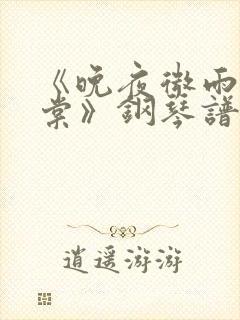 《晚夜微雨
棠》鋼琴譜
逍遥游游